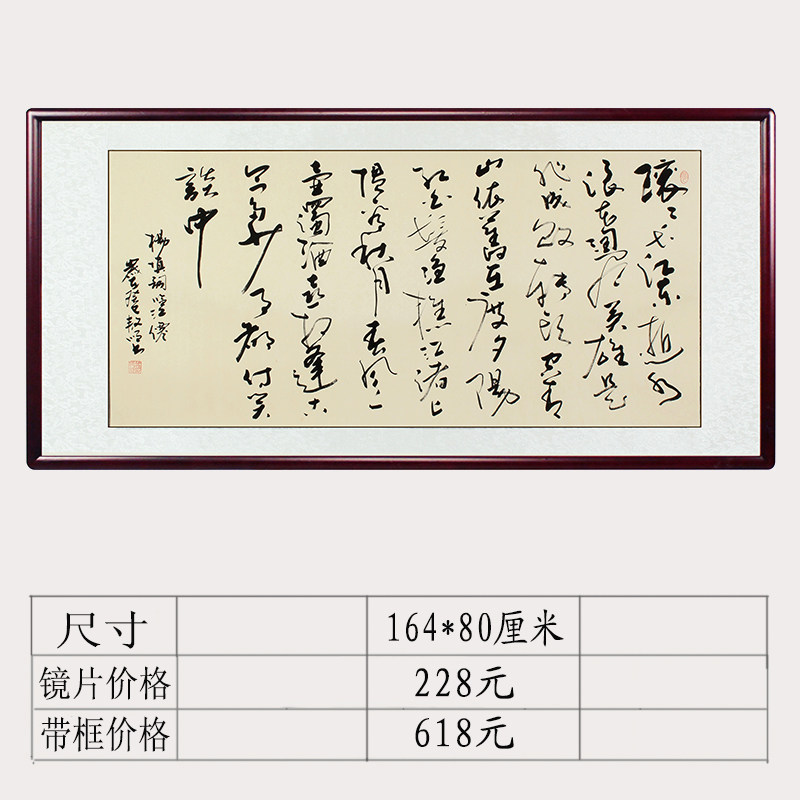 滚滚长江东逝水
浪花淘尽英雄是
非成敗轉头空青
山依舊在几度夕陽
红白髮渔樵江渚上
慣看秋月春风一
壶濁酒喜相逢古
今多少事都付笑
談中
楊慎詞臨江仙
尺寸 164*80厘米
镜片价格 228元
带框价格 618元